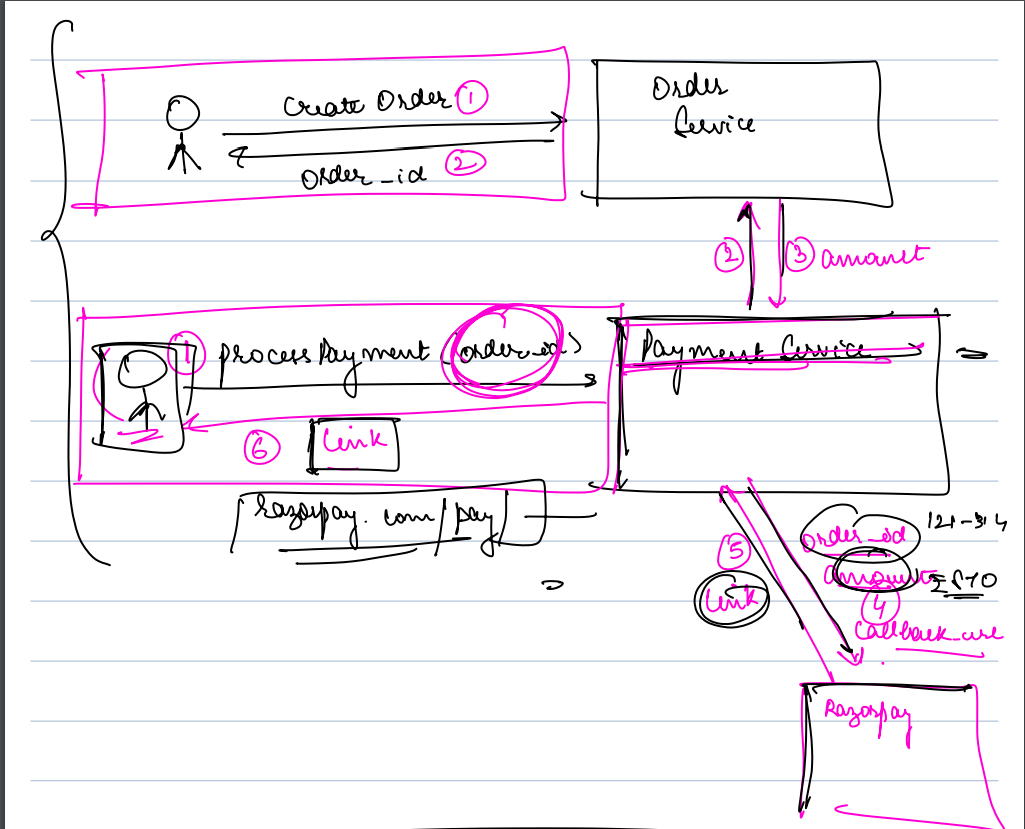 Create Order 1
Order Service
2
Order_id
2
3 amount
1 processPayment (order_id)
Payment Service
6 Link
Razorpay.com/pay/
5
Link
order_id
amount
4
Razorpay